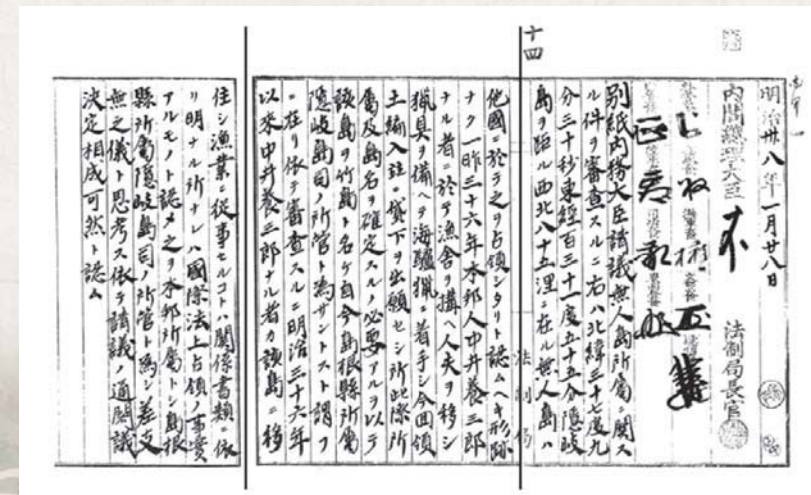 十四
明治卅八年一月廿八日
内閣總理大臣
法制局長官
別紙内務大臣請議無人島所属ニ關ス
ル件ヲ審査スルニ右ハ北緯三十七度九
分三十秒東經百三十一度五十五分隱岐
島ヲ距ル西北八十五浬ニ在ル無人島ハ
他國ニ於テ之ヲ占領シタリト認ムヘキ形跡
ナク一昨三十六年本邦人中井養三郎
ナル者ニ於テ漁舍ヲ構ヘ人夫ヲ移シ
獵具ヲ備ヘテ海驢獵ニ着手シ今回領
土編入並ニ貸下ヲ出願セシ所此際所
属及島名ヲ確定スルノ必要アルヲ以テ
該島ヲ竹島ト名ケ自今島根縣所属
隱岐島司ノ所管ト為サントスト謂フ
ニ在リ依テ審査スルニ明治三十六年
以来中井養三郎ナル者カ該島ニ移
住シ漁業ニ從事セルコトハ關係書類ニ依
リ明ナル所ナレハ國際法上占領ノ事實
アルモノト認メ之ヲ本邦所属トシ島根
縣所属隱岐島司ノ所管ト為シ差支
無之儀ト思考ス依テ請議ノ通閣議
決定相成可然ト認ム
法制局